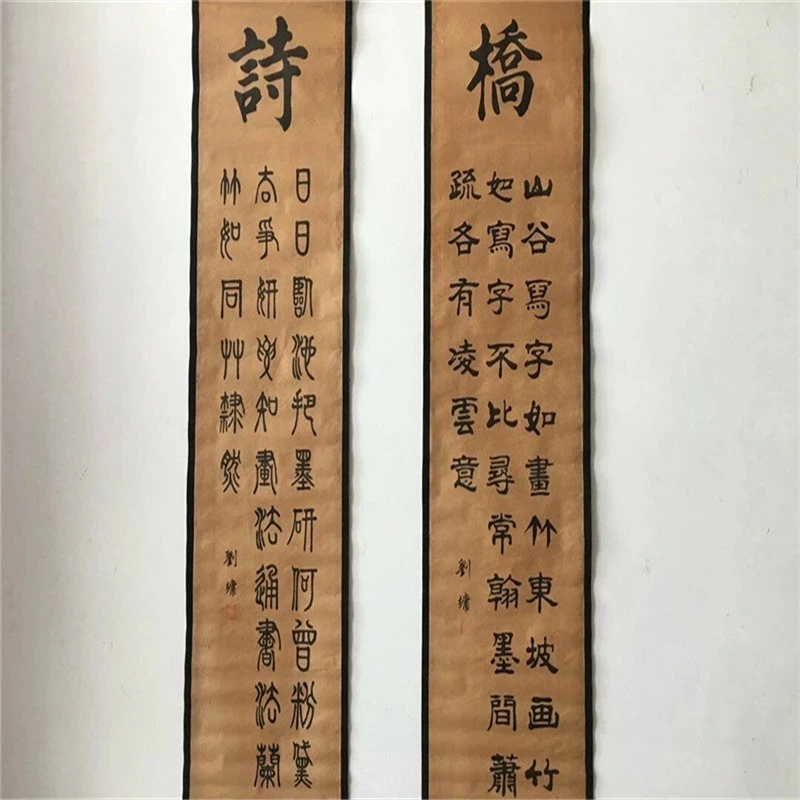 橋
山谷寫字如畫竹東坡画竹
如寫字不比尋常翰墨間蕭
疏各有凌雲意
劉墉
詩
日日臨池把墨研何曾粉黛
去爭妍要知畫法通書法蘭
竹如同艸隸然
劉墉